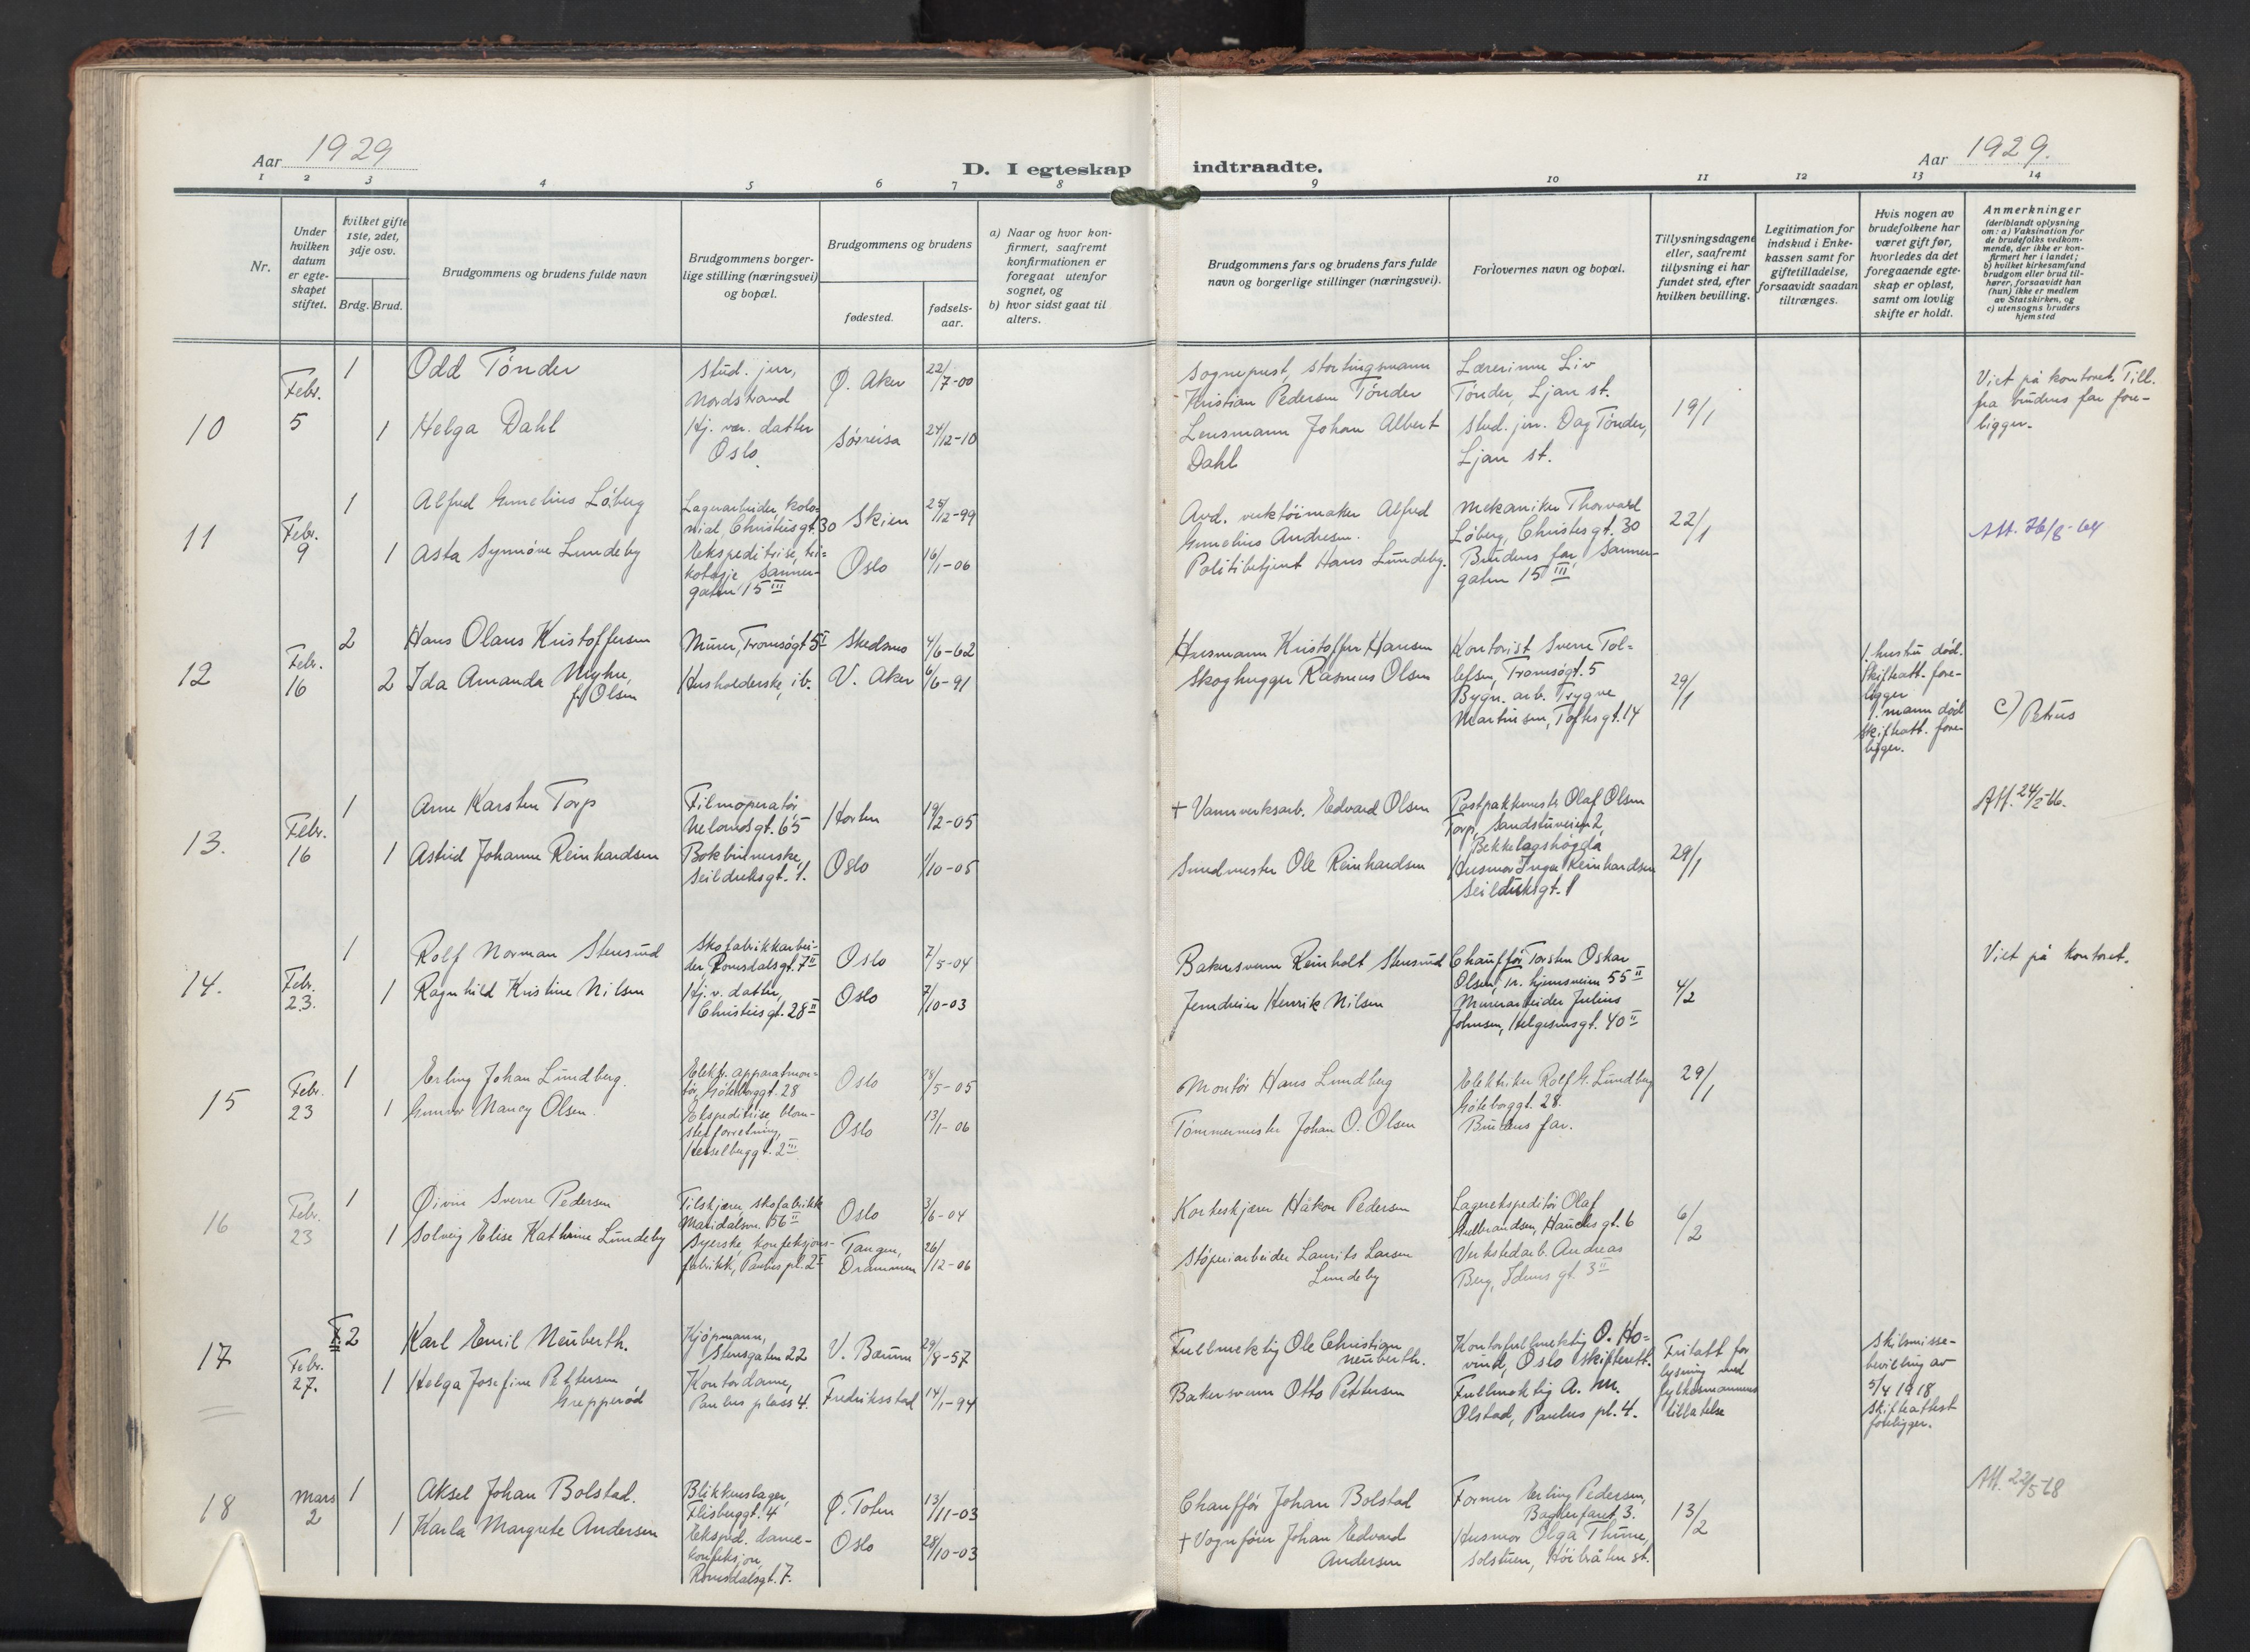 Aar 1929
D. I egteskap
indtraadte.
Aar 1929.
1 2 3 4 5 6 7 8 9 10 11 12 13 14
Nr.
Under hvilken datum er egteskapet stiftet.
Hvilket gifte 1ste, 2det, 3dje osv.
Brdg. Brud.
Brudgommens og brudens fulde navn
Brudgommens borgerlige stilling (næringsvei) og bopæl.
Brudgommens og brudens
fødested.
fødselsaar.
a) Naar og hvor konfirmert, saafremt konfirmationen er foregaat utenfor sognet, og
b) hvor sidst gaat til alters.
Brudgommens fars og brudens fars fulde navn og borgerlige stillinger (næringsvei).
Forlovernes navn og bopæl.
Tillysningsdagene eller, saafremt tillysning ei har fundet sted, efter hvilken bevilling.
Legitimation for indskud i Enkekassen samt for giftetilladelse, forsaavidt saadan tiltrænges.
Hvis nogen av brudefolkene har været gift før, hvorledes da det foregaaende egteskap er opløst, samt om lovlig skifte er holdt.
Anmerkninger
(deriblandt oplysning om: a) Vaksination for de brudefolks vedkommende, der ikke er konfirmert her i landet;
b) hvilket kirkesamfund brudgom eller brud tilhører, forsaavidt han (hun) ikke er medlem av Statskirken, og
c) utensogns bruders hjemsted
10
Febr.
5
1
Odd Tönder
Stud. jur,
Nordstrand
Ø. Aker
22/7-00
1
Helga Dahl
Hj. vær. datter
Oslo.
Sørreisa
24/12-10
Sogneprest, stortingsmann
Kristian Pedersen Tönder
Lensmann Johan Albert
Dahl
Lærerinne Liv
Tönder, Ljan st.
Stud. jur. Dag Tönder,
Ljan st.
19/1
Viet på kontoret. Till.
fra brudens far fore-
ligger.
11
Febr.
9
1
Alfred Gunelius Löberg
Lagerarbeider, kolo-
nial, Christiesgt. 30
Skien
25/12-99
1
Asta Synnöve Lundeby
Ekspeditrise, tri-
kotasje, Sanner-
gaten 15 III
Oslo
16/1-06
Avd. verktöimaker Alfred
Gunelius Andresen.
Politibetjent Hans Lundeby.
Mekaniker Thorvard
Löberg, Christiesgt. 30
Brudens far, Sanner-
gaten 15 III
22/1
12
Febr.
16
2
Hans Olaus Kristoffersen
Murer, Tromsögt 5 I
Skedsmo
4/6-62
2
Ida Amanda
f. Olsen
Husholderske, ib.
V. Aker
6/6-91
Husmann Kristoffer Hansen
Skoghugger Rasmus Olsen
Kontorist Sverre Tol-
lefsen, Tromsögt. 5
Bygn. arb. Trygve
Martinsen, Toftesgt. 14
29/1
1. hustru död.
Skifteatt. fore-
ligger
1. mann död
skifteatt. fore-
ligger.
c) Petrus
13.
Febr.
16
1
Arne Karsten Torp
Filmoperatör
Uelandsgt. 65
Horten
19/2-05
1
Astrid Johanne Reinhardsen
Bokbinnerske,
Seilduksgt. 1.
Oslo
1/10-05
+ Vannverksarb. Edvard Olsen
Smedmester Ole Reinhardsen
Postpakkmester Olaf Olsen
Torp, Sandstuveien 2,
Bekkelagshögda
Husmor Inga Reinhardsen
Seilduksgt. 1
29/1
Att. 24/2-66.
14.
Febr.
23.
1
Rolf Norman Stensrud
Skofabrikkarbei-
der, Romsdalsgt. 7 II
Oslo
7/5-04
1
Ragnhild Kristine Nilsen
Hj. v. datter,
Christiesgt. 28 II
Oslo
7/10-03
Bakersvenn Reinholt Stensrud
Jerndreier Henrik Nilsen
Chauffför Torsten Oskar
Olsen, Tr.hjemsveien 55 II
Murerarbeider Julius
Johnsen, Helgesensgt. 40 II
4/2
Viet på kontoret.
15
Febr.
23
1
Erling Johan Lundberg.
Elektr. apparatmon-
tör, Göteborggt. 28
Oslo
28/5-05
1
Gunvor Nancy Olsen.
Ekspeditrise blom-
sterforretning,
Hesselberggt. 2 III
Oslo
13/1-06
Montör Hans Lundberg
Tömmermester Johan O. Olsen
Elektriker Rolf G. Lundberg
Göteborggt. 28.
Brudens far.
29/1
16
Febr.
23
1
Øivin Sverre Pedersen
Tilskjærer, skofabrikk
Maridalsvn. 56 II
Oslo
3/6-04
1
Solveig Elise Kathrine Lundeby
Syerske, konfeksjons-
fabrikk, Paulus pl. 2 I
Tangen,
Drammen
26/12-06
Korkeskjærer Håkon Pedersen
Stöperiarbeider Laurits Larsen
Lundeby
Lagerekspeditör Olaf
Gulbrandsen, Hauchs gt. 6
Verkstedarb. Andreas
Berg, Iduns gt. 3 II
6/2
17
Febr.
27.
F. 2
Karl Emil Neuberth.
Kjöpmann,
Stensgaten 22
V. Bærum
29/8-57
1
Helga Josefine Pettersen
Grepperöd
Kontordame,
Paulus plass 4.
Fredriksstad
14/1-94
Fullmektig Ole Christian
Neuberth.
Bakersvenn Otto Pettersen
Kontorfullmektig O. Ho-
vind, Oslo skifterett.
Fullmektig A. M.
Olstad, Paulus pl. 4.
Fritatt for
lysning med
fylkesmannens
tillatelse
Skilsmisse-
bevilling av
5/4 1918
Skifteattest
foreligger.
18
Mars
2
1
Aksel Johan Bolstad.
Blikkenslager,
Flisberggt. 4
Ø. Toten
13/11-03
1
Karla Margrete Andersen
Eksped. dame-
konfeksjon,
Romsdalsgt. 7.
Oslo
28/10-03
Chauffför Johan Bolstad
+ Vognförer Johan Edvard
Andersen
Former Erling Pedersen,
Baglerfaret 3.
Husmor Olga Thune,
Solstuen, Höibråten st.
13/2
Att. 22/5-68